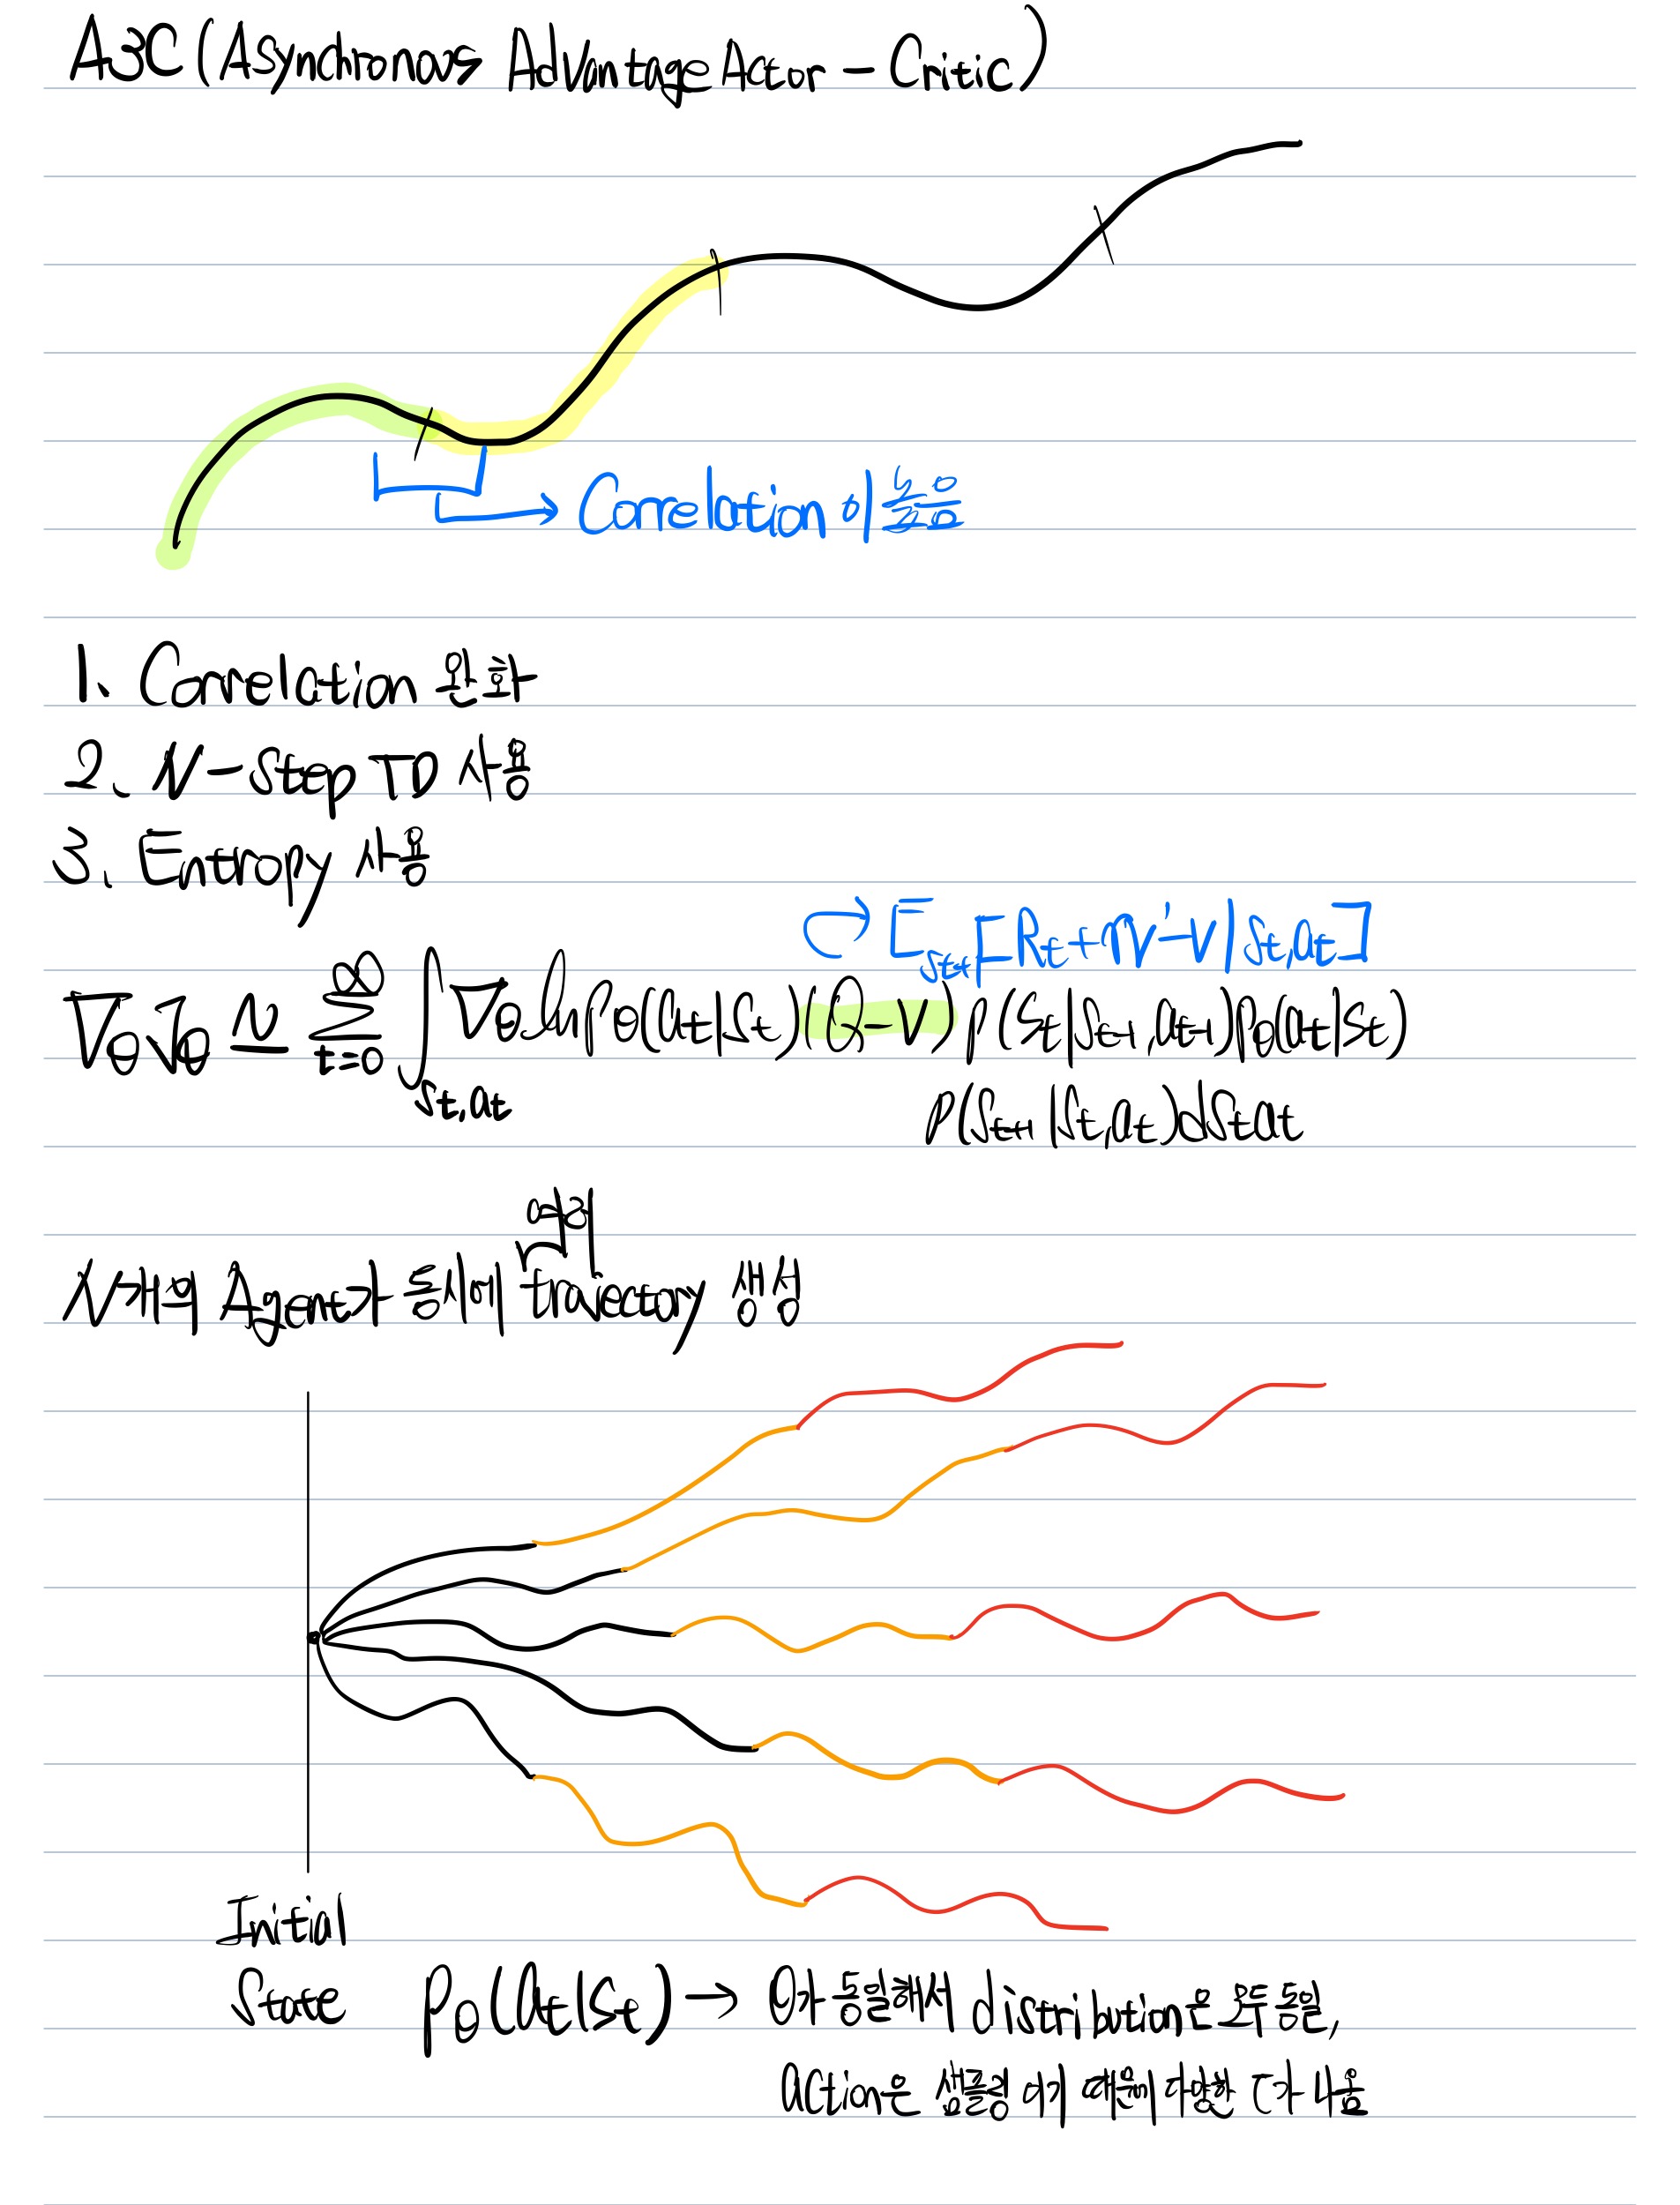 A3C (Asynchronous Advantage Actor - Critic)
Correlation이 높음
1. Correlation 완화
2. N-step TD 사용
3. Entropy 사용
↪ E_{S_{t+1}}[R_t + γV' - V | S_t, a_t]
∇_θ J_θ ≃ Σ_{t=0}^{∞} ∫_{S_t, a_t} ∇_θ ln P_θ(a_t|S_t) (Q-V) P(S_t|S_{t-1}, a_{t-1}) P_θ(a_t|S_t)
P(S_{t+1}|S_t, a_t) dS_t a_t
여러
N개의 Agent가 동시에 trajectory 생성
Initial
State P_θ(a_t|S_t) → θ가 동일해서 distribution은 모두 동일,
action은 샘플링 하기 때문에 다양한 다 나옴